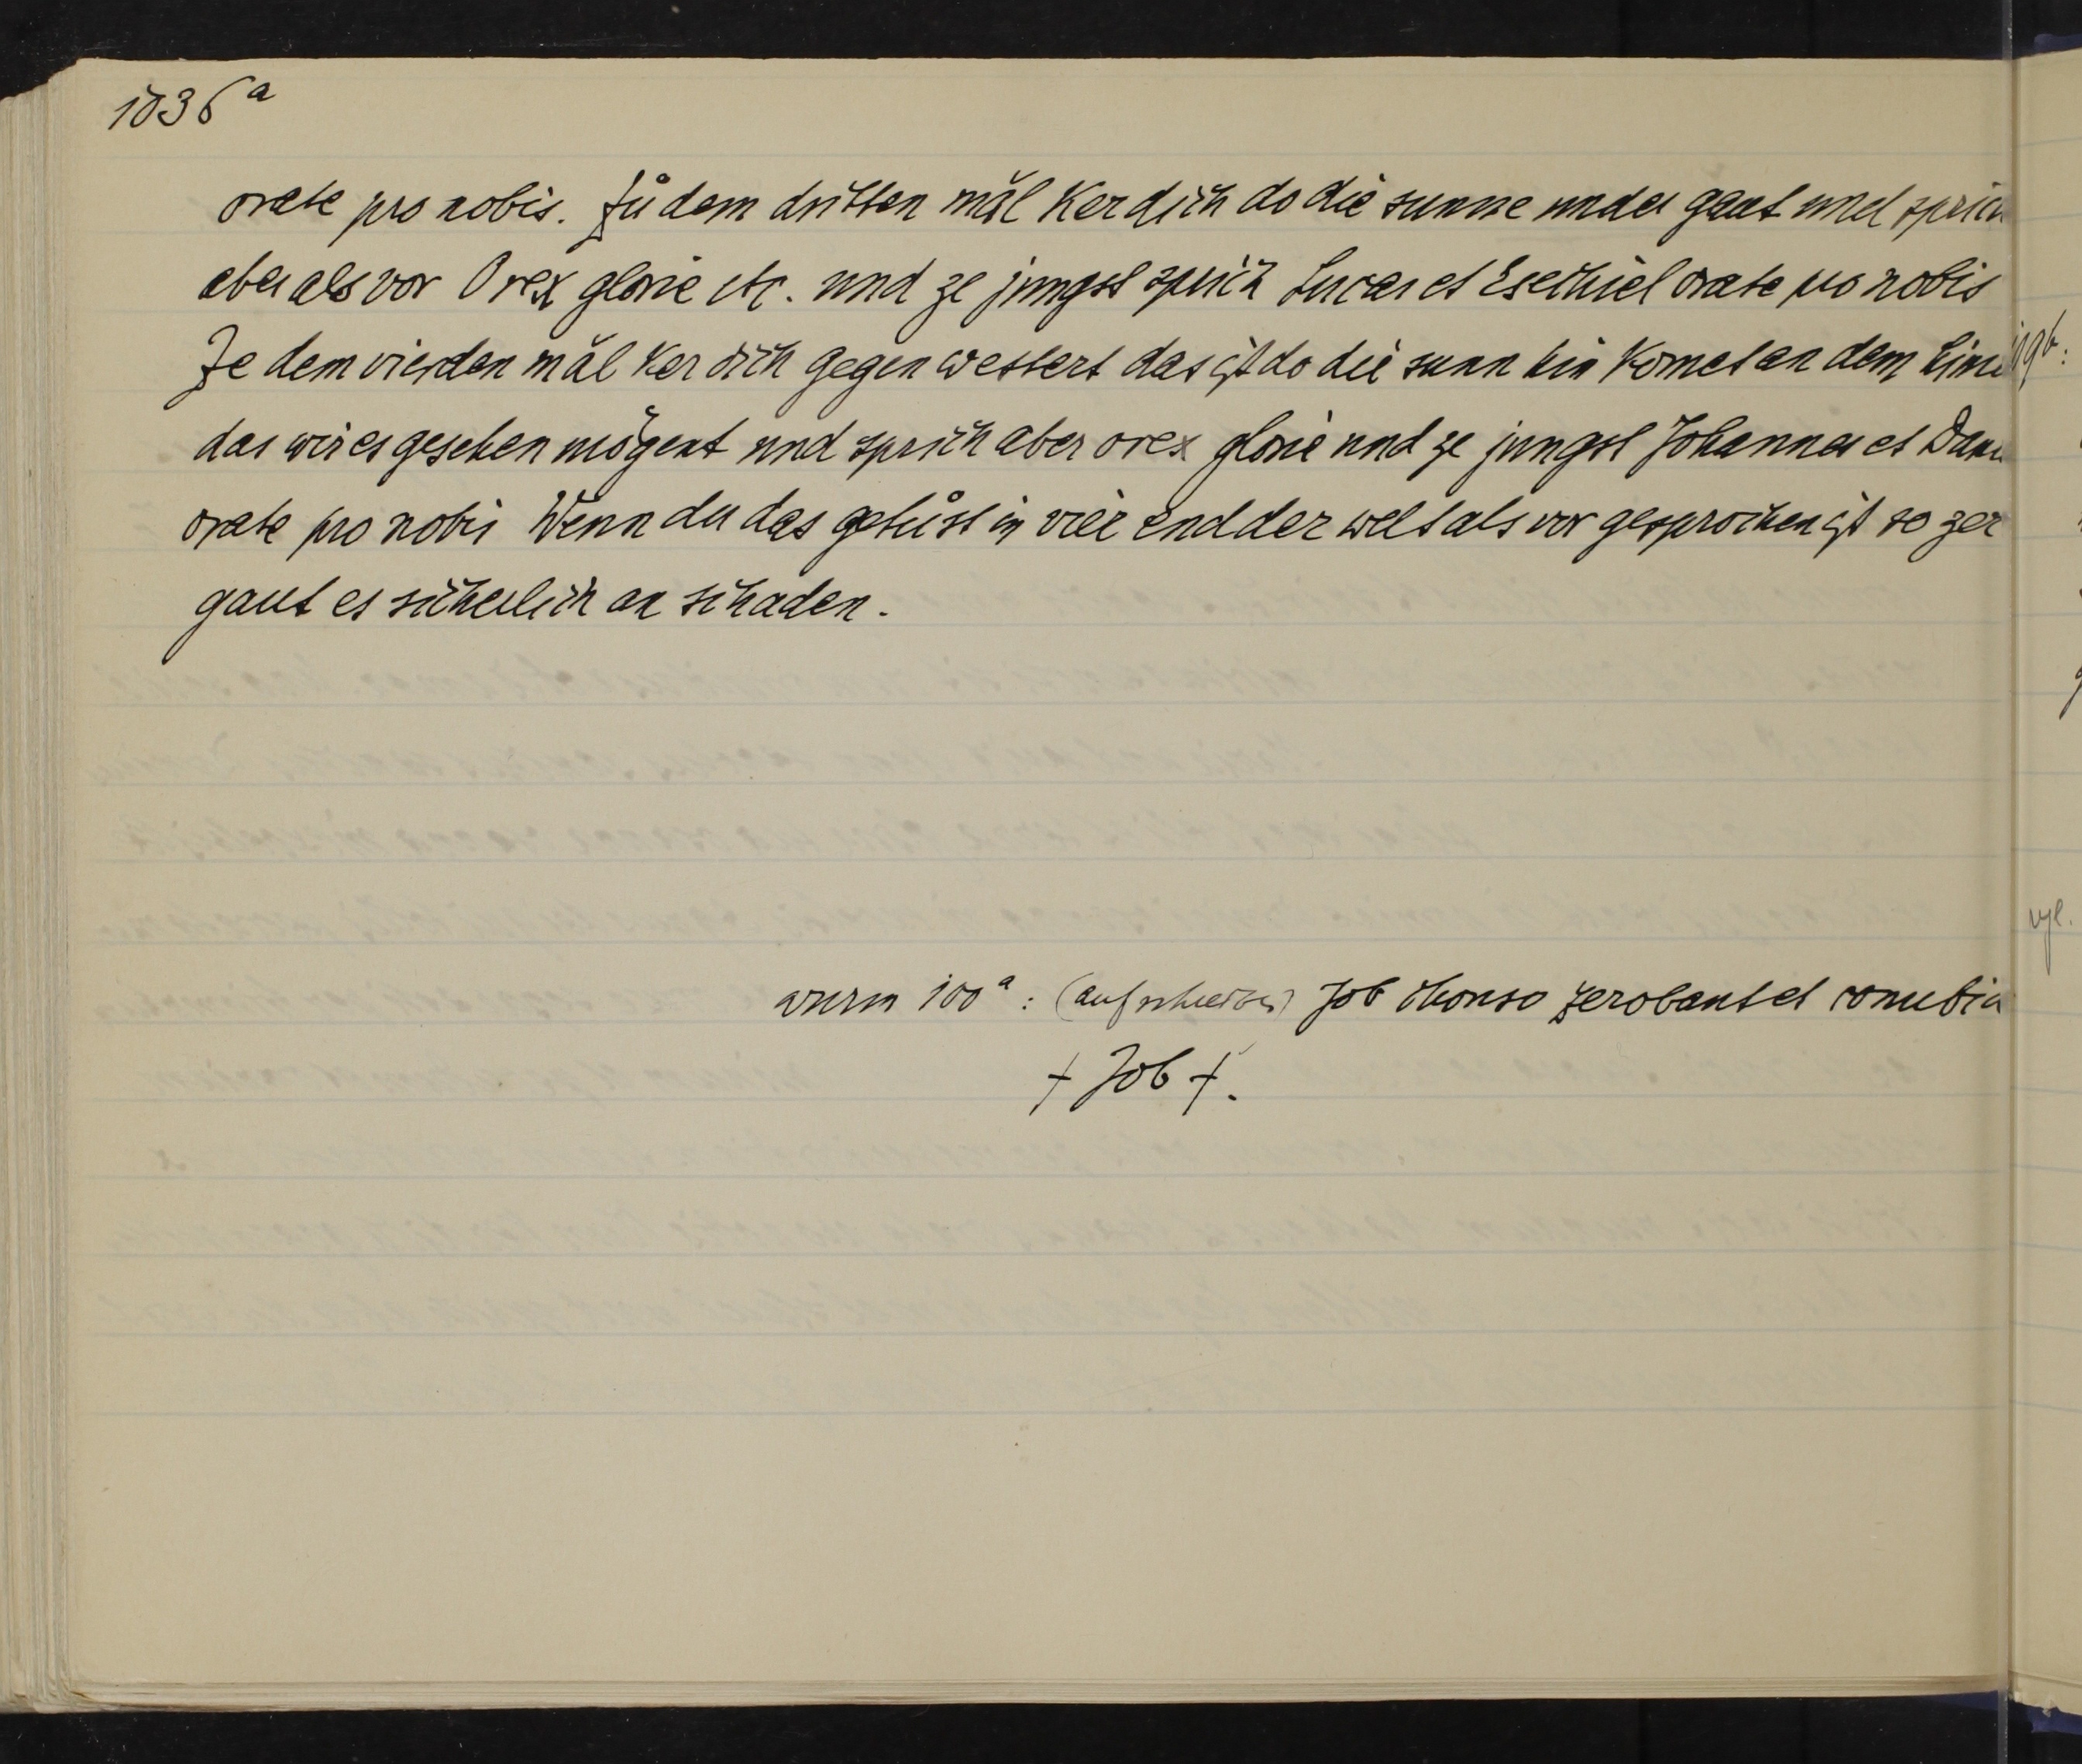 1036ᵃ
orate pro nobis. Zů dem dritten mǎl ker dich do die sunne under gaut und sprich
aber als vor O rex glorie etc. und ze jungst sprich Lucas et Esechiel orate pro nobis
Ze dem vierden mǎl ker dich gegen westert das ist do die sunn hin komet an dem himel
das wir es gesehen mögent und sprich aber o rex glorie und ze jungst Johannes et Dani
orate pro nobis Wenn du das getůst in vier end der welt als vor gesprochen ist so zer
gaut es sicherlich an schaden.
wurm 100ᵃ: (aufschreiben) Job chonso zerobantet conubia
† Job †.
vgl.